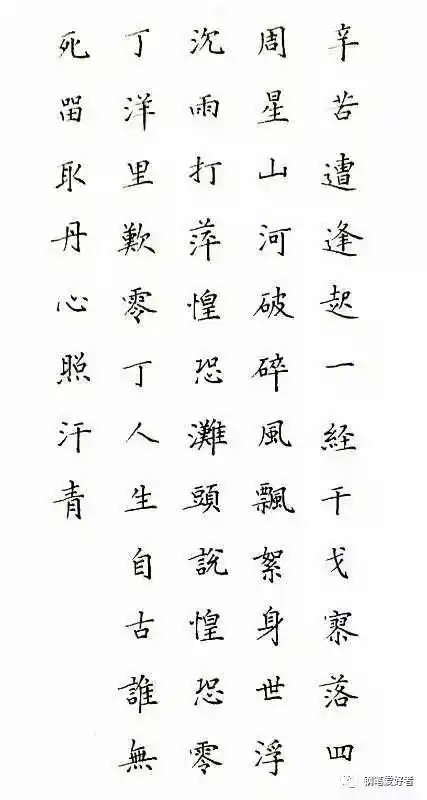 辛苦遭逢起一経干戈寥落四
周星山河破碎風飄絮身世浮
沉雨打萍惶恐灘頭說惶恐零
丁洋里歎零丁人生自古誰無
死留取丹心照汗青
钢笔爱好者